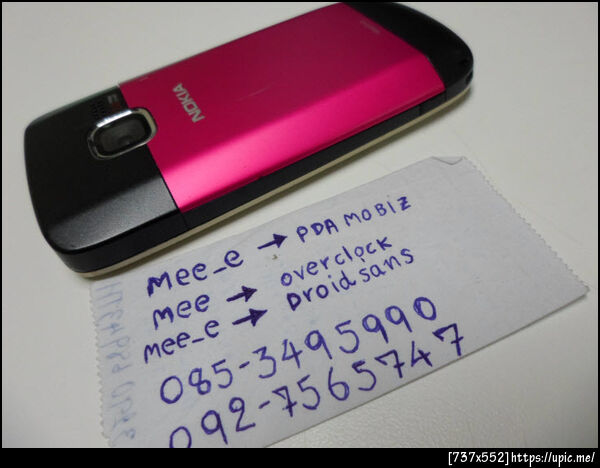 NOKIA
mee_e → PDAMOBIZ
mee → overclock
mee_e → Droidsans
085-3495990
092-7565747
[737x552]https://upic.me/